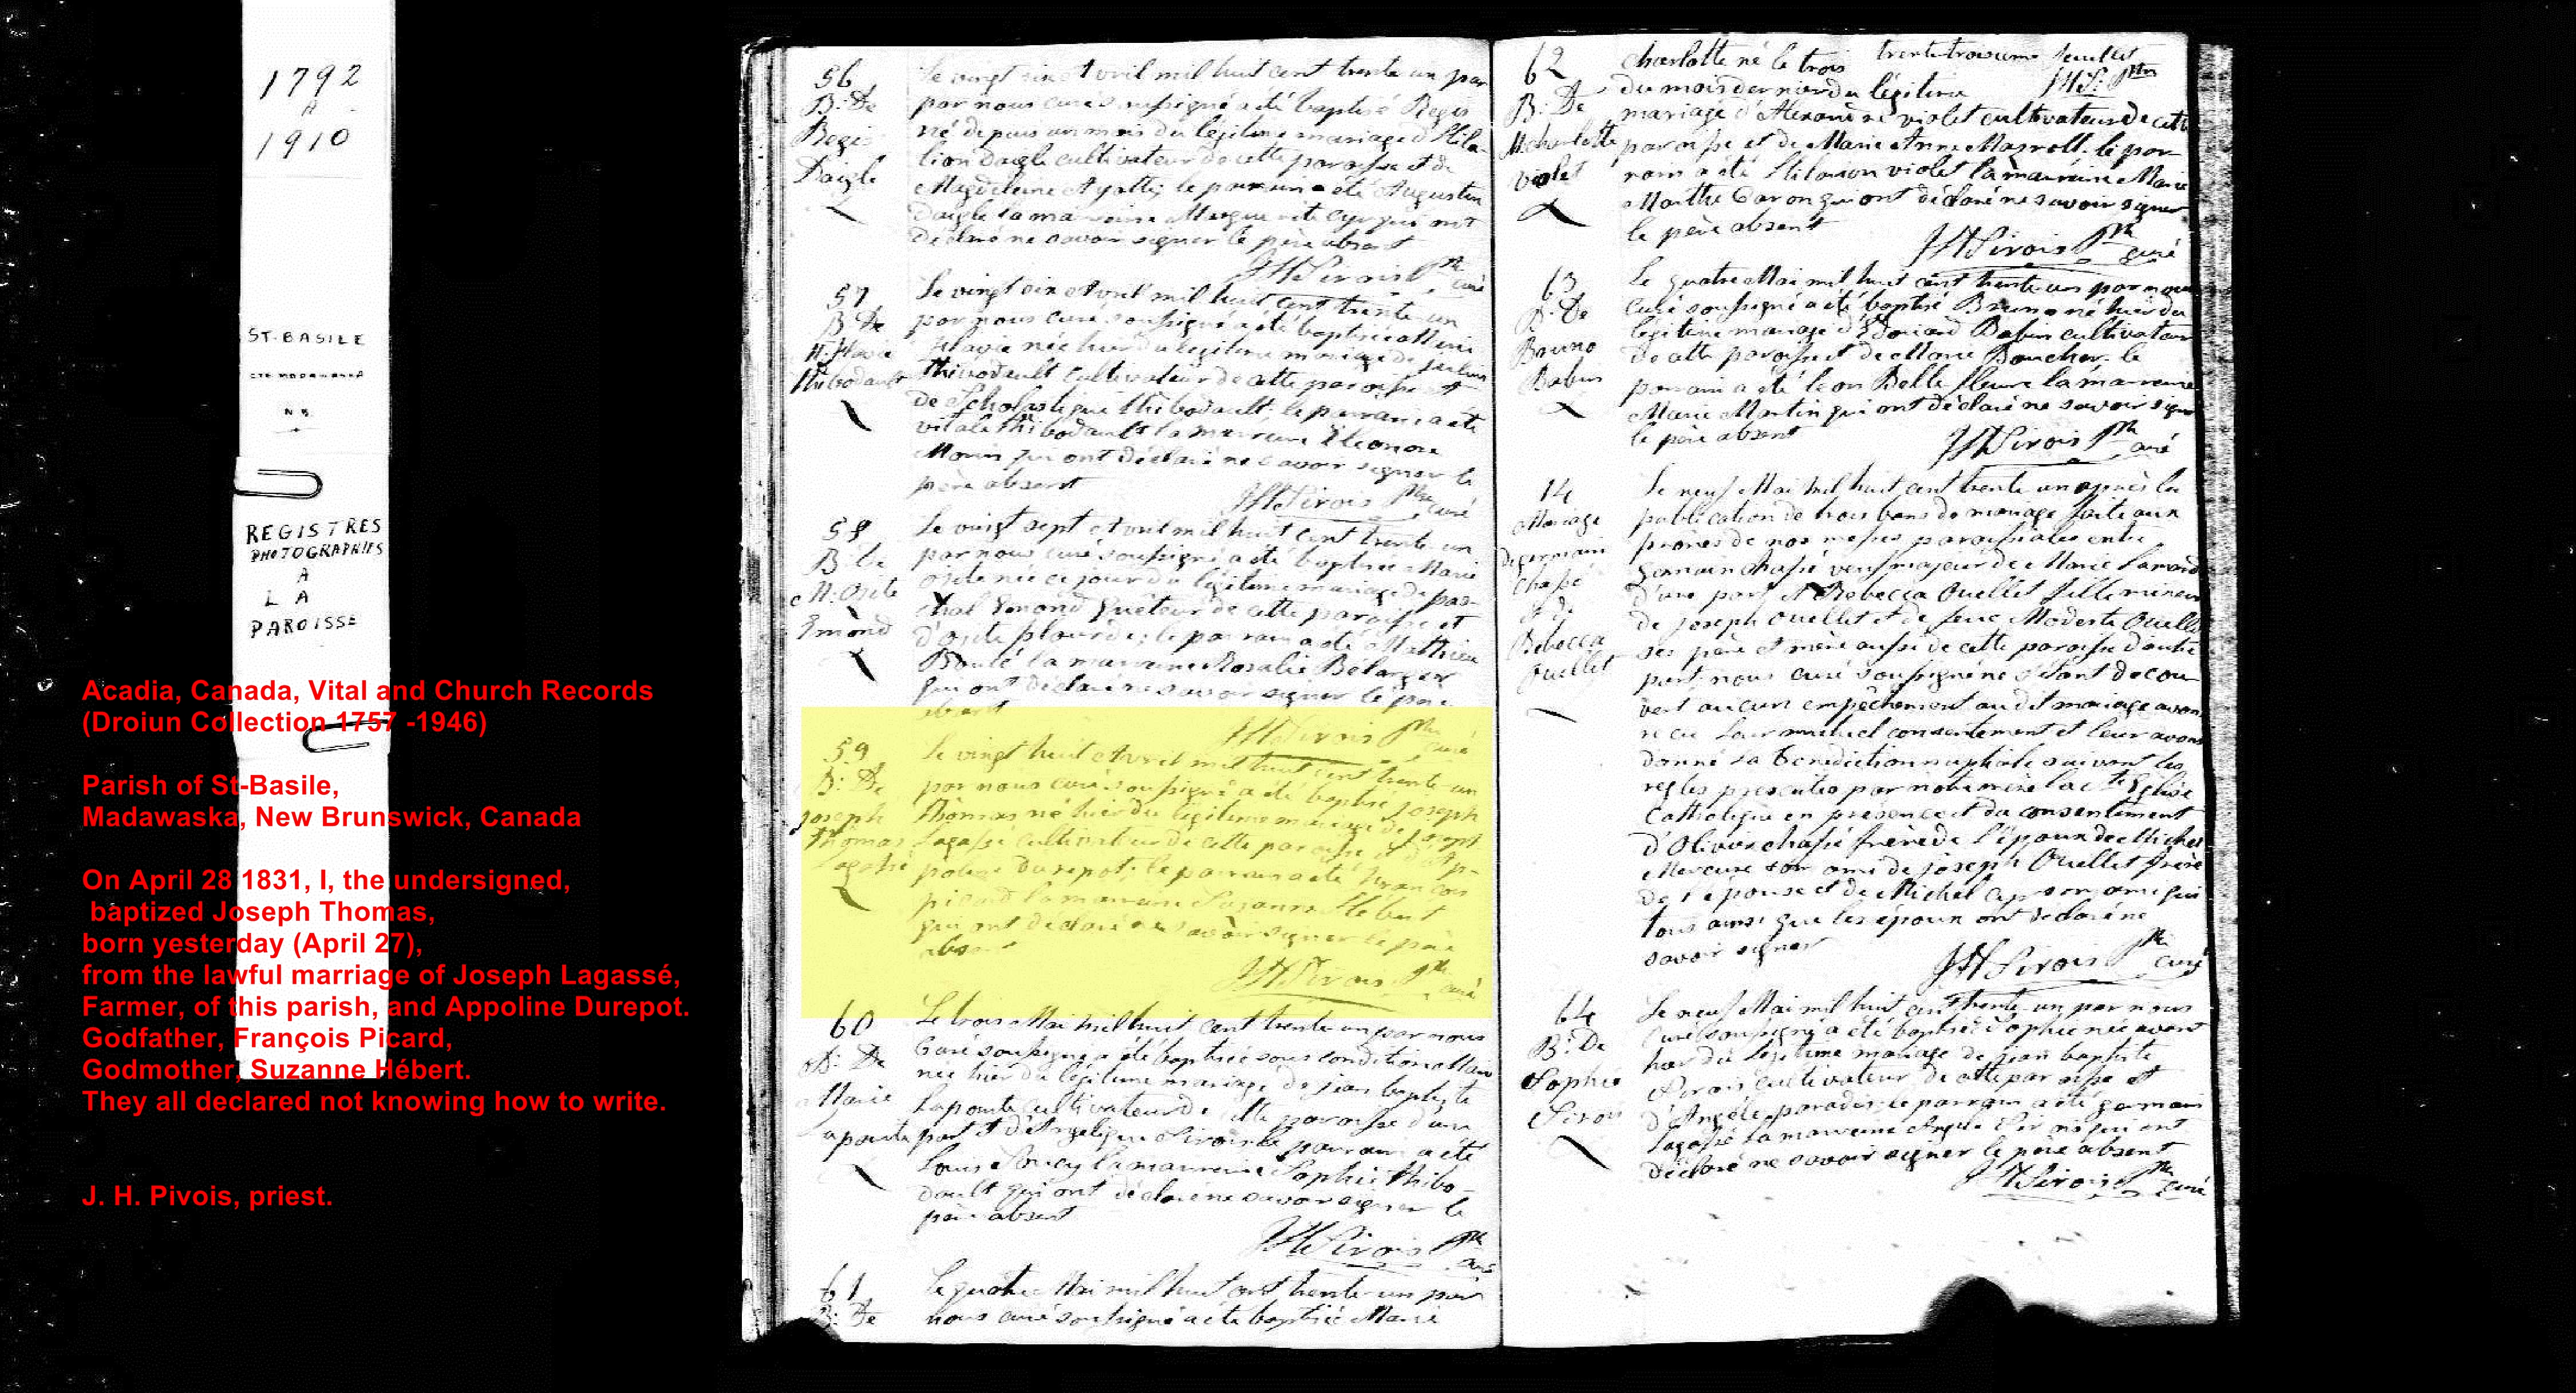 1792
A
1910
ST-BASILE
CTE MADAWASKA
N B
REGISTRES
PHOTOGRAPHIES
A
L A
PAROISSE
Acadia, Canada, Vital and Church Records
(Droiun Collection 1757 -1946)
Parish of St-Basile,
Madawaska, New Brunswick, Canada
On April 28 1831, I, the undersigned,
baptized Joseph Thomas,
born yesterday (April 27),
from the lawful marriage of Joseph Lagassé,
Farmer, of this parish, and Appoline Durepot.
Godfather, François Picard,
Godmother, Suzanne Hébert.
They all declared not knowing how to write.
J. H. Pivois, priest.
56
B: De
Regis
Daigle
Le vingt six Avril mil huit cent trente un par
par nous curé soussigné a été baptisé Regis
né depuis un mois du légitime mariage d'Hila-
lion daigle cultivateur de cette paroisse et de
Magdeleine Ayotte; le parrain a été Augustin
daigle la marraine Marguerite Cyr qui ont
déclaré ne savoir signer le père absent
57
B De
M: flavie
thibodault
Le vingt six Avril mil huit cent trente un
par nous curé soussigné a été baptisée Marie
flavie née hier du légitime mariage de
thibodault cultivateur de cette paroisse et
de Scholastique thibodault; le parrain a été
vitale thibodault la marraine Eleonore
Morin qui ont déclaré ne savoir signer le
père absent
58
B: De
M: Osite
Emond
Le vingt sept Avril mil huit cent trente un
par nous curé soussigné a été baptisée Marie
Osite née ce jour du légitime mariage de pas-
chal Emond quêteur de cette paroisse et
d'Osite plourde; le parrain a été Mathieu
la marraine Rosalie Belanger
qui ont déclaré ne savoir signer le père
absent
59
B: De
joseph
thomas
Lagassé
Le vingt huit Avril mil huit cent trente un
par nous curé soussigné a été baptisé joseph
thomas né hier du légitime mariage de joseph
Lagassé cultivateur de cette paroisse et d'Ap-
poline durepot; le parrain a été françois
picard la marraine Susanne Hebert
qui ont déclaré ne savoir signer le père
absent
60
B: De
Marie
Lapointe
Le trois Mai mil huit cent trente un par nous
Curé soussigné a été baptisée sous condition Marie
née hier du légitime mariage de jean baptiste
Lapointe cultivateur de cette paroisse d'une
part et d'Angelique Sirois le parrain a été
Louis Soucy la marraine Sophie thibo-
dault qui ont déclaré ne savoir signer le
père absent
61
B: De
Le quatre Mai mil huit cent trente un par
nous curé soussigné a été baptisée Marie
trente troisieme feuillet
62
B: De
M charlotte
violet
charlotte né le trois
du mois dernier du légitime
mariage d'Alexandre violet cultivateur de cette
paroisse et de Marie Anne le par-
rain a été Hilarion violet la marraine Marie
Marthe Caron qui ont déclaré ne savoir signer
le père absent
63
B: De
Bruno
Babin
Le quatre Mai mil huit cent trente un par nous
curé soussigné a été baptisé Bruno né hier du
légitime mariage d'Edouard Babin cultivateur
de cette paroisse et de Marie Boucher. le
parrain a été leon Bellefleur la marraine
Marie Martin qui ont déclaré ne savoir signer
le père absent
14
Mariage
de germain
Chassé
et de
Rebecca
Ouellet
Le neuf Mai mil huit cent trente un après la
publication de trois bans de mariage faite aux
prones de nos messes paroissiales entre
Germain chassé veuf majeur de Marie
d'une part et Rebecca Ouellet fille mineure
de joseph Ouellet et de feue Modeste Ouellet
ses père et mère aussi de cette paroisse d'autre
part nous curé soussigné ne s'étant décou-
vert aucun empêchement au dit mariage avons
recu leur mutuel consentement et leur avons
donné la benediction nuptiale suivant les
regles prescrites par notre mère la Ste Eglise
Catholique en présence et du consentement
d'Olivier chassé frère de l'époux de Michel
Mercure son ami de joseph Ouellet frère
de l'épouse et de Michel Cyr son ami qui
tous ainsi que les époux ont déclaré ne
savoir signer
64
B: De
Sophie
Sirois
Le neuf Mai mil huit cent trente un par nous
curé soussigné a été baptisée Sophie née avant
hier du légitime mariage de jean baptiste
Sirois cultivateur de cette paroisse et
d'Angèle paradis; le parrain a été germain
Lagassé la marraine Angèle Sirois qui ont
déclaré ne savoir signer le père absent